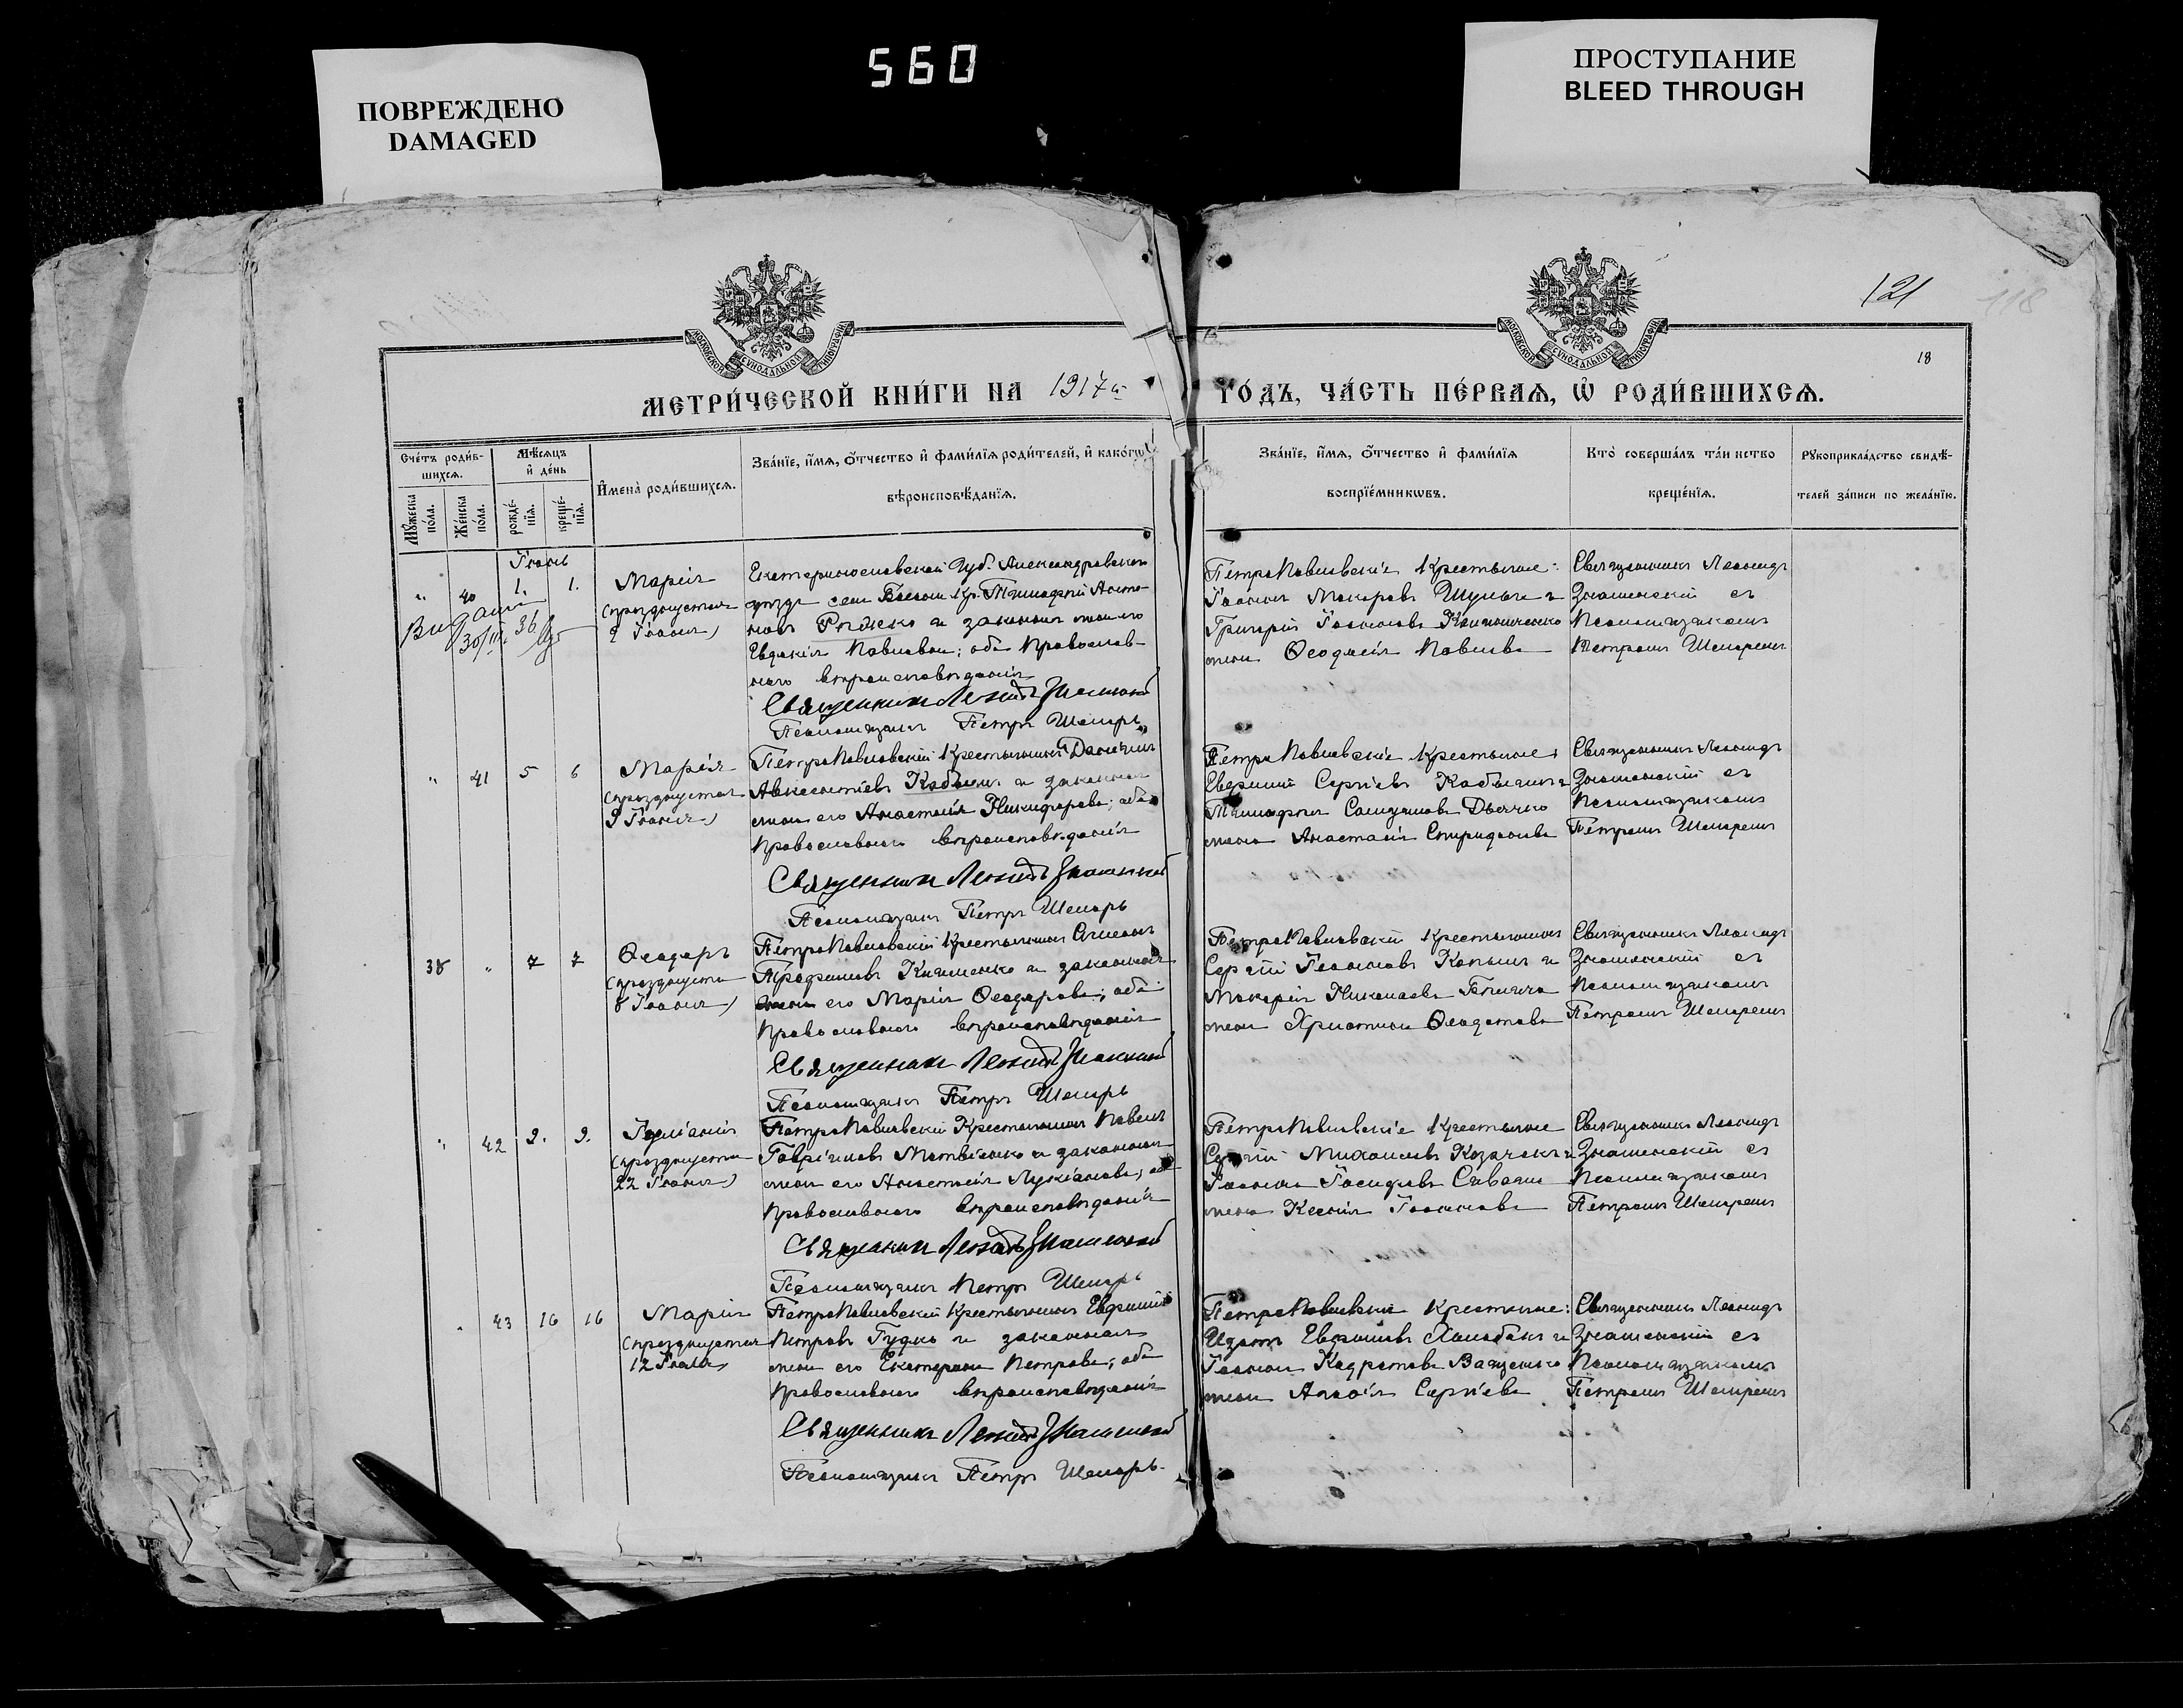 ПОВРЕЖДЕНО
DAMAGED
560
ПРОСТУПАНИЕ
BLEED THROUGH
МОСКОВСКОЙ СѴНОДАЛЬНОЙ ТИПОГРАФІИ
МОСКОВСКОЙ СѴНОДАЛЬНОЙ ТИПОГРАФІИ
121
118
18
МЕТРИ́ЧЕСКОЙ КНИ́ГИ НА 1917й
ГО́ДЪ, ЧА́СТЬ ПЕ́РВАѦ, Ѡ҆ РОДИ́ВШИХСѦ.
Сче́тъ роди́в-
шихсѧ.
Мꙋ́жеска
по́ла.
Же́нска
по́ла.
Мѣ́сѧцъ
и҆ де́нь
рожде́-
нїѧ.
креще́-
нїѧ.
И҆мена̀ роди́вшихсѧ.
Зва́нїе, и҆́мѧ, ѻ҆́тчество и҆ фами́лїѧ роди́телей, и҆ како́гѡ
вѣроисповѣ́данїѧ.
Зва́нїе, и҆́мѧ, ѻ҆́тчество и҆ фами́лїѧ
воспрїе́мникѡвъ.
Кто̀ соверша́лъ та́инство
креще́нїѧ.
Рꙋкоприкла́дство свидѣ́-
телей за́писи по жела́нїю.
Іюнь
" 40 1. 1. Марія
(празднуется
9 Іюня)
Видана
30/III 36
Екатеринославской Губ. Александровскаго
уѣзда села кр. Тимофей Анто-
новъ Рыжко и законная жена его
Евдокія Павлова; оба Православ-
наго вѣроисповѣданія
Священникъ Леонидъ Знаменскій
Псаломщикъ Петръ Шепарь
ПетроПавловскіе крестьяне:
Іоаннъ Макаровъ Шульга и
Григорія Іоаннова Кониченко
жена Ѳеодосія Павлова
Священникъ Леонидъ
Знаменскій съ
Псаломщикомъ
Петромъ Шепаремъ
" 41 5 6 Марія
(празднуется
9 Іюня)
ПетроПавловскій крестьянинъ Даніилъ
Авксентіевъ Кабылъ и законная
жена его Анастасія Никифорова; оба
Православнаго вѣроисповѣданія
Священникъ Леонидъ Знаменскій
Псаломщикъ Петръ Шепарь
ПетроПавловскіе крестьяне:
Евфимій Сергіевъ и
Тимофея Самуилова Дьячко
жена Анастасія Спиридонова
Священникъ Леонидъ
Знаменскій съ
Псаломщикомъ
Петромъ Шепаремъ
38 " 7 7 Ѳеодоръ
(празднуется
8 Іюня)
ПетроПавловскій крестьянинъ
Трофимовъ и законная
жена его Марія Ѳеодорова; оба
Православнаго вѣроисповѣданія
Священникъ Леонидъ Знаменскій
Псаломщикъ Петръ Шепарь
ПетроПавловскій крестьянинъ
Сергій Іоанновъ и
Макарія Николаева
жена Христина Ѳеодотова
Священникъ Леонидъ
Знаменскій съ
Псаломщикомъ
Петромъ Шепаремъ
" 42 9. 9. Іуліанія
(празднуется
22 Іюня)
ПетроПавловскій Крестьянинъ Павелъ
Гавріиловъ Матвіенко и законная
жена его Анастасія Лукіанова; оба
Православнаго вѣроисповѣданія
Священникъ Леонидъ Знаменскій
Псаломщикъ Петръ Шепарь
ПетроПавловскіе крестьяне
Сергій Михаиловъ Козачекъ и
Іоанна Іосифова
жена Ксенія Іоаннова
Священникъ Леонидъ
Знаменскій съ
Псаломщикомъ
Петромъ Шепаремъ
" 43 16 16 Марія
(празднуется
12 Іюля)
ПетроПавловскій крестьянинъ Евфимій
Петровъ Гудко и законная
жена его Екатерина Петрова; оба
Православнаго вѣроисповѣданія
Священникъ Леонидъ Знаменскій
Псаломщикъ Петръ Шепарь
ПетроПавловскіе крестьяне:
Евфимовъ и
Іоанна Кодратова Ващенко
жена Агаѳія Сергіева
Священникъ Леонидъ
Знаменскій съ
Псаломщикомъ
Петромъ Шепаремъ